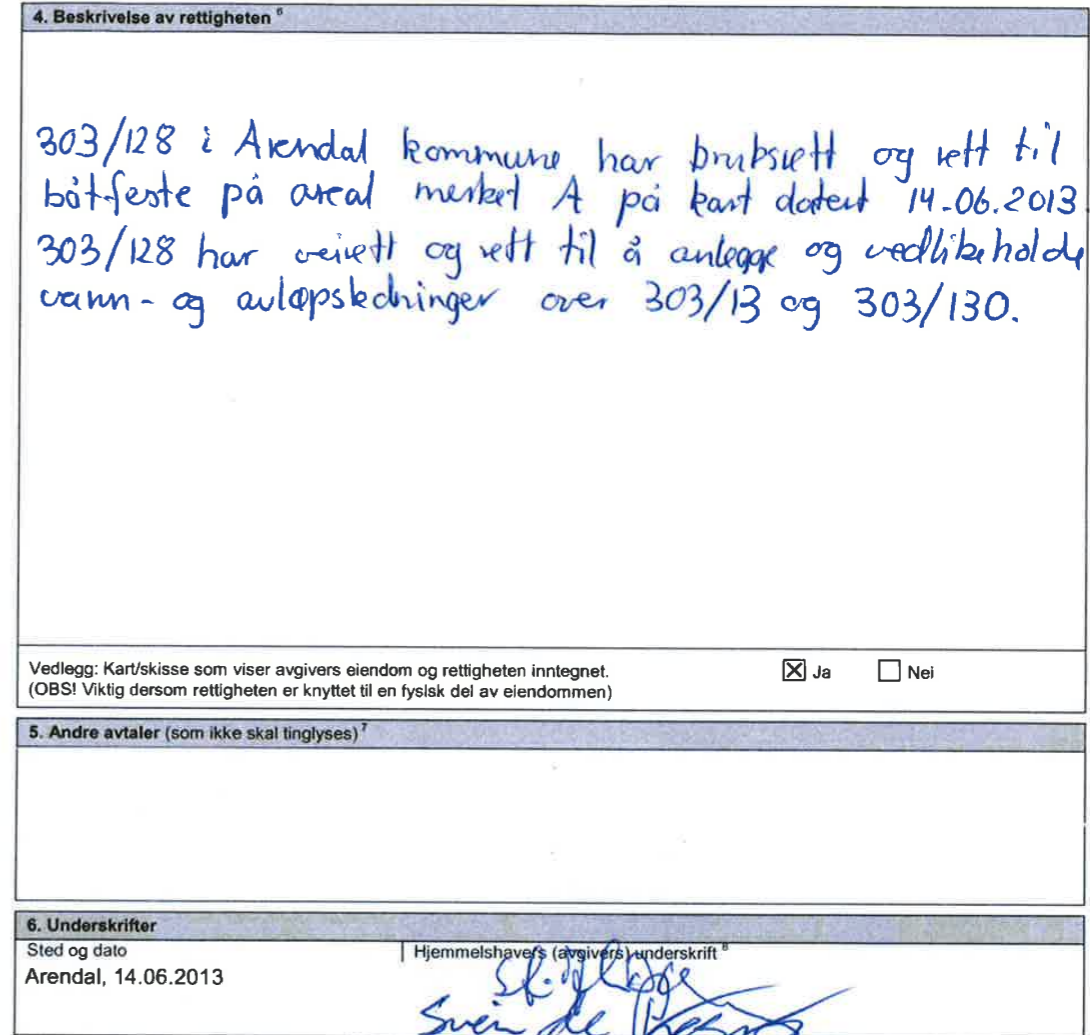 4. Beskrivelse av rettigheten 6
303/128 i Arendal kommune har bruksrett og rett til
båtfeste på areal merket A på kart datert 14.06.2013.
303/128 har veirett og rett til å anlegge og vedlikeholde
vann- og avløpsledninger over 303/13 og 303/130.
Vedlegg: Kart/skisse som viser avgivers eiendom og rettigheten inntegnet. Ja Nei
(OBS! Viktig dersom rettigheten er knyttet til en fysisk del av eiendommen)
5. Andre avtaler (som ikke skal tinglyses) 7
6. Underskrifter
Sted og dato Hjemmelshavers (avgivers) underskrift 8
Arendal, 14.06.2013